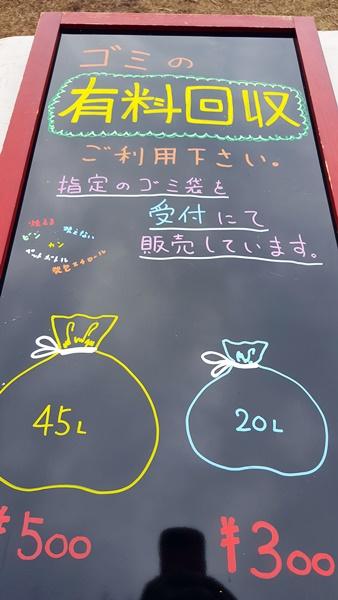 ゴミの
有料回収
ご利用下さい。
指定のゴミ袋を
受付にて
販売しています。
燃える 燃えない
ビン カン
ペットボトル
発泡スチロール
45L
20L
¥500
¥300